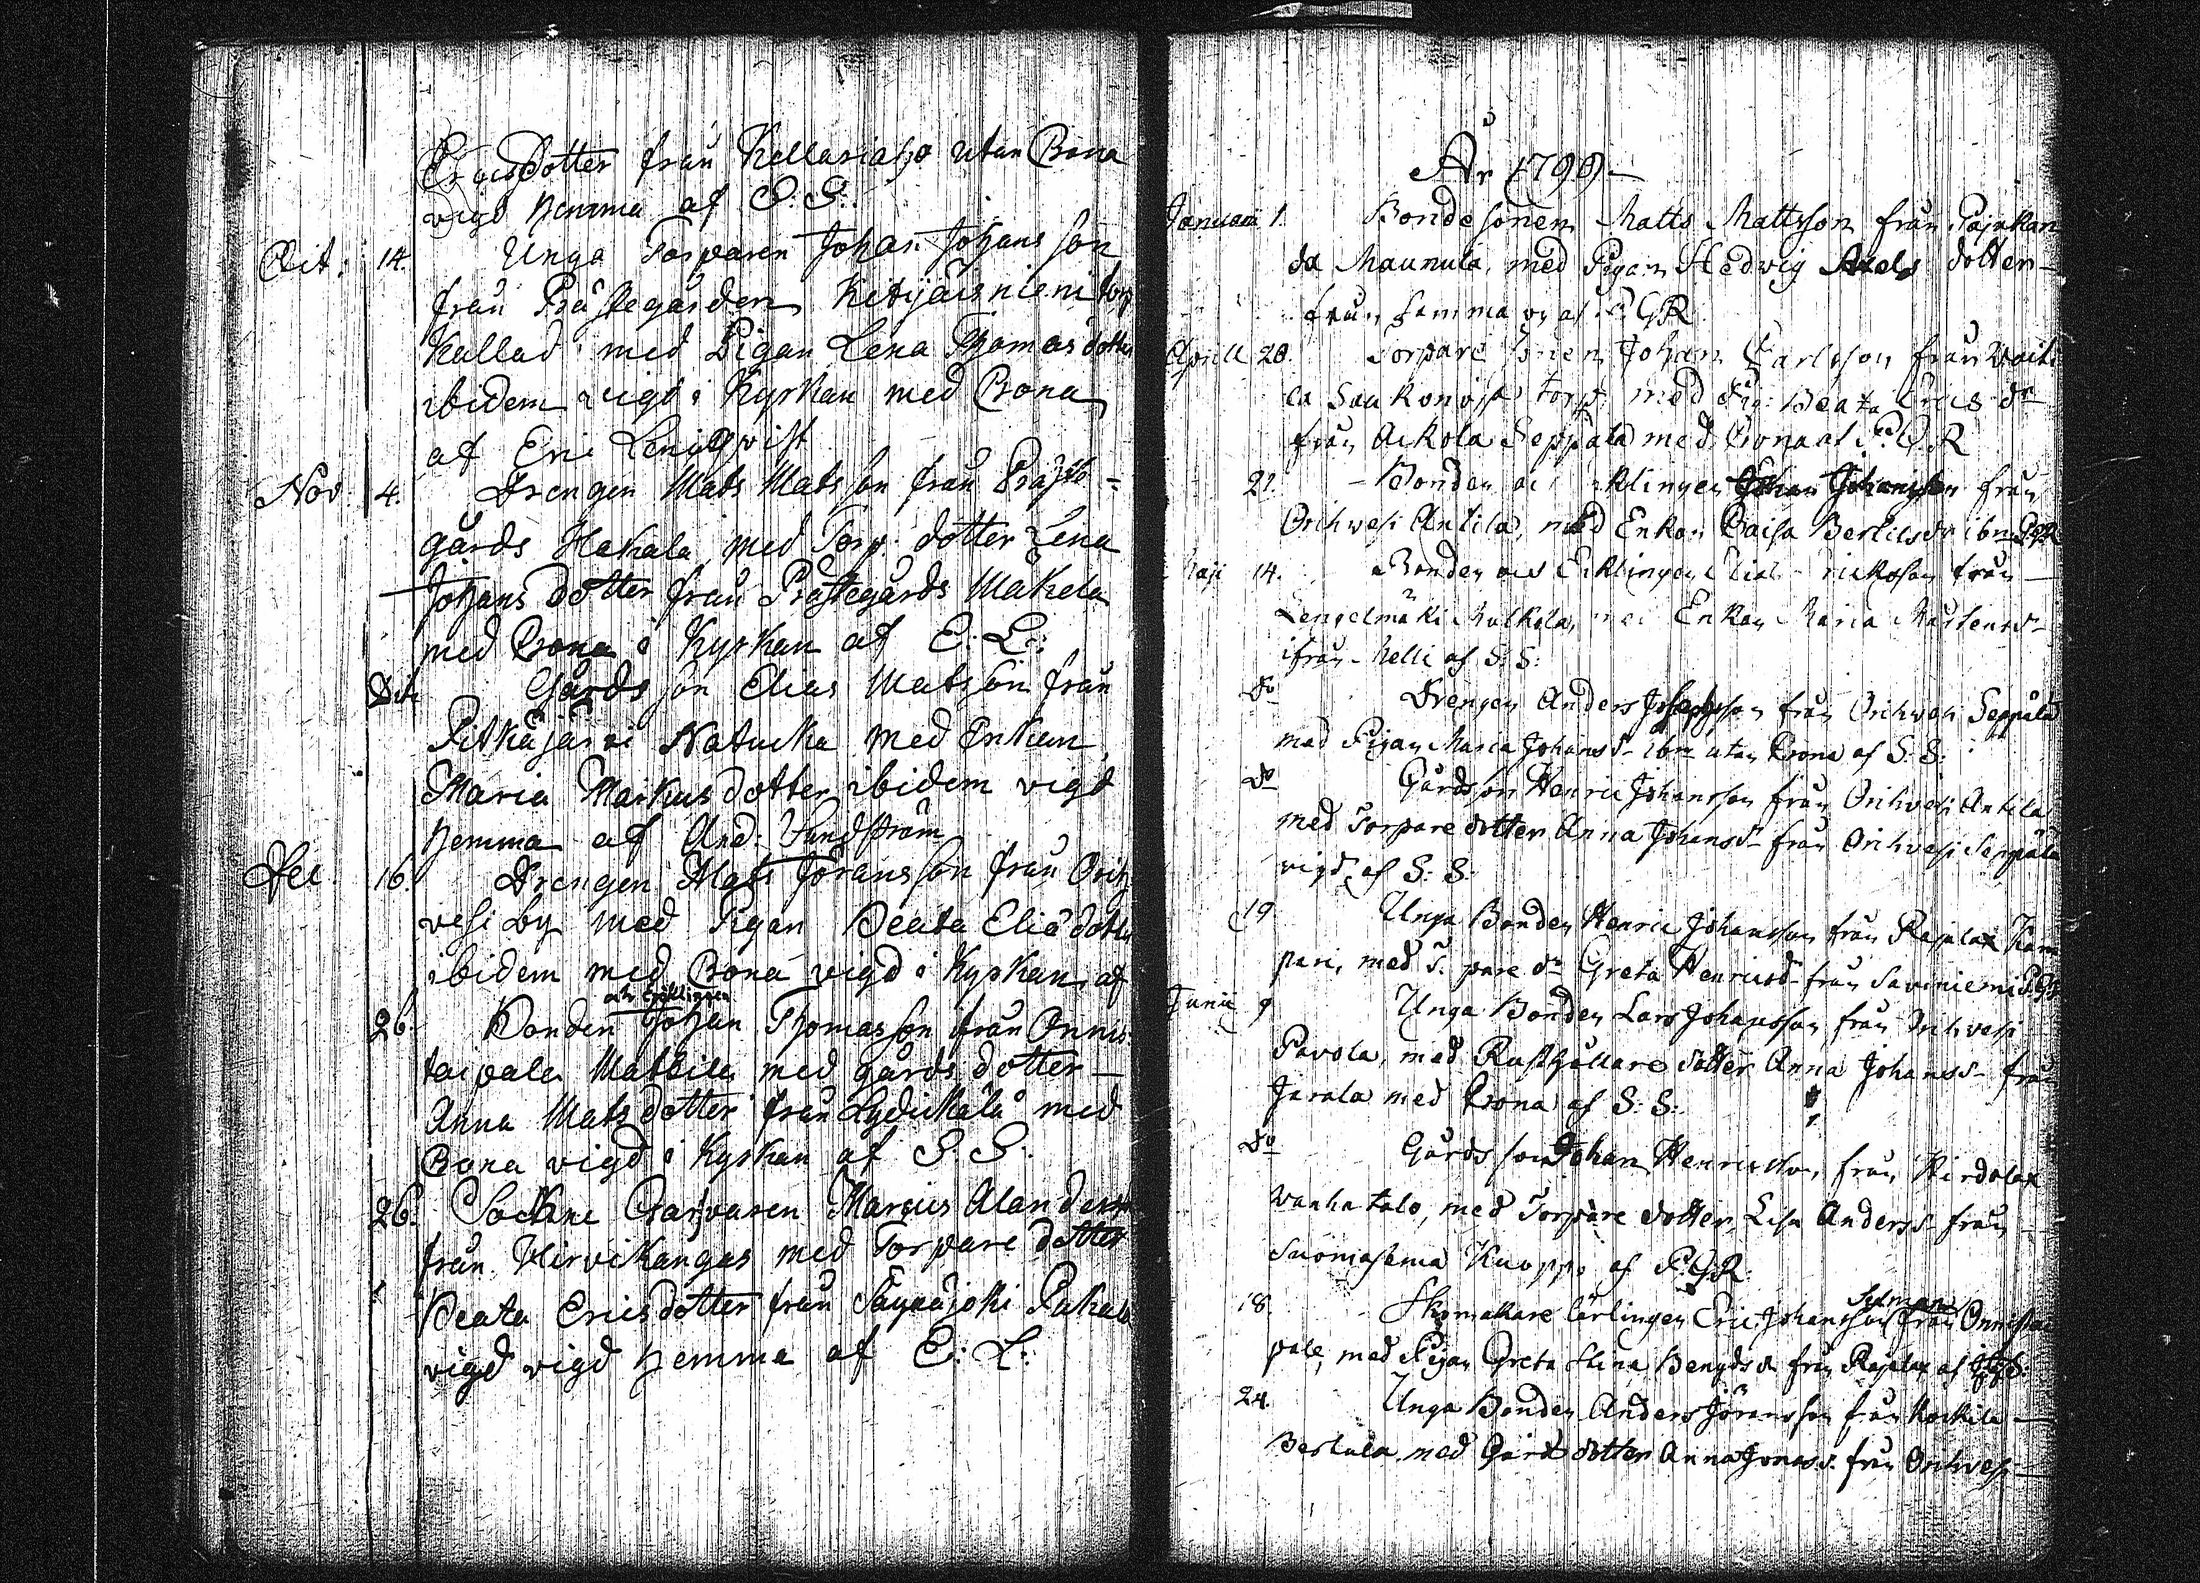 Ericsdotter från Kellariaho utan Crona
vigd hemma af S. S:
Oct: 14. Unga Torparen Johan Johans son
från Prästegården Ketijäisniemi torp
Kallad med Pigan Lena Thomas dotter
ibidem vigd i Kyrkan med Crona
af Eric Lenqvist
Nov: 4. Drengen Mats Matsson från Präste=
gårds Hakala med Torp: dotter Lena
Johans dotter från Prästegårds Mäkelä
med Crona i Kyrkan af E: L:
Dito Gårds son Elias Matsson från
Pitkäjärvi Natucka med Enkan
Maria Markus dotter ibidem vigd
hemma af And: Sundström
Dec. 16. Drengen Mats Göransson från Orih
vesi by med Pigan Beata Elia dotter
ibidem med Crona vigd i Kyrkan af
och Enklingen
26. Bonden Johan Thomasson från Onnis
taipale Mattila med gårds dotter
Anna Mats dotter från Lydickälä med
Crona vigd i Kyrkan af S. S.
26. Sockne Garfvaren Marcus Alander
från Hirvikangas med Torpare dotter
Beata Erics dotter från Säynäjoki Pakala
vigd vigd hemma af E: L:
År 1799
Januarii 1. Bonde sonen Matts Mattsson från Pajukan
da Maunula, med Pigan Hedvig Axels dotter
från samma by af P. G R
Aprill 20. Torpare sonen Johan Carlsson från Voiti
la torp, med Pig: Beata Erics dr
från Ackola Seppälä med Crona af P. G. R
21. Bonden oc nklingen Johan Johansson från
Orihwesi Antila, med Enkan Caisa Bertilsdr ibm PGR
Maji 14. Bonden och Enklingen Elias rickson från
Lengelmäki Mulkola, med Enkan Maria Mårtensdr
ifrån Kelli af S: S:
Do Drengen Anders Josephsson från Orihwesi Seppälä
med Pigan Maria Johansdr ibm utan Crona af S. S:
Do Gårdsson Henric Johansson från Orihwesi Antila
med Torpare dotter Anna Johansdr från Orihwesi Seppälä
vigd af S: S:
19 Unga Bonden Henric Johansson från Rajalax Kam
pari, med T. pare dr Greta Henricsdr från Saviniemi P.G.R
Junii 9 Unga Bonden Lars Johansson från Orihvesi
Pavola, med Rusthållare dotter Anna Johansdr från
Jarala med Crona af S: S:
Do Gårds son Johan Henricsson, från Hirdolax
Wanhatalo, med Torpare dotter Lisa Andersdr från
Suomasema Kuoppi af P. G R
18. Skomakare lärlingen Eric Johansson Selman från Onnistai
pale, med Pigan Greta Stina Bengdsdr från Rajalax af
24. Unga Bonden Anders Göransson från Kockila
Bertula med Gårds dotter Anna Jonasdr. från Orihvesi